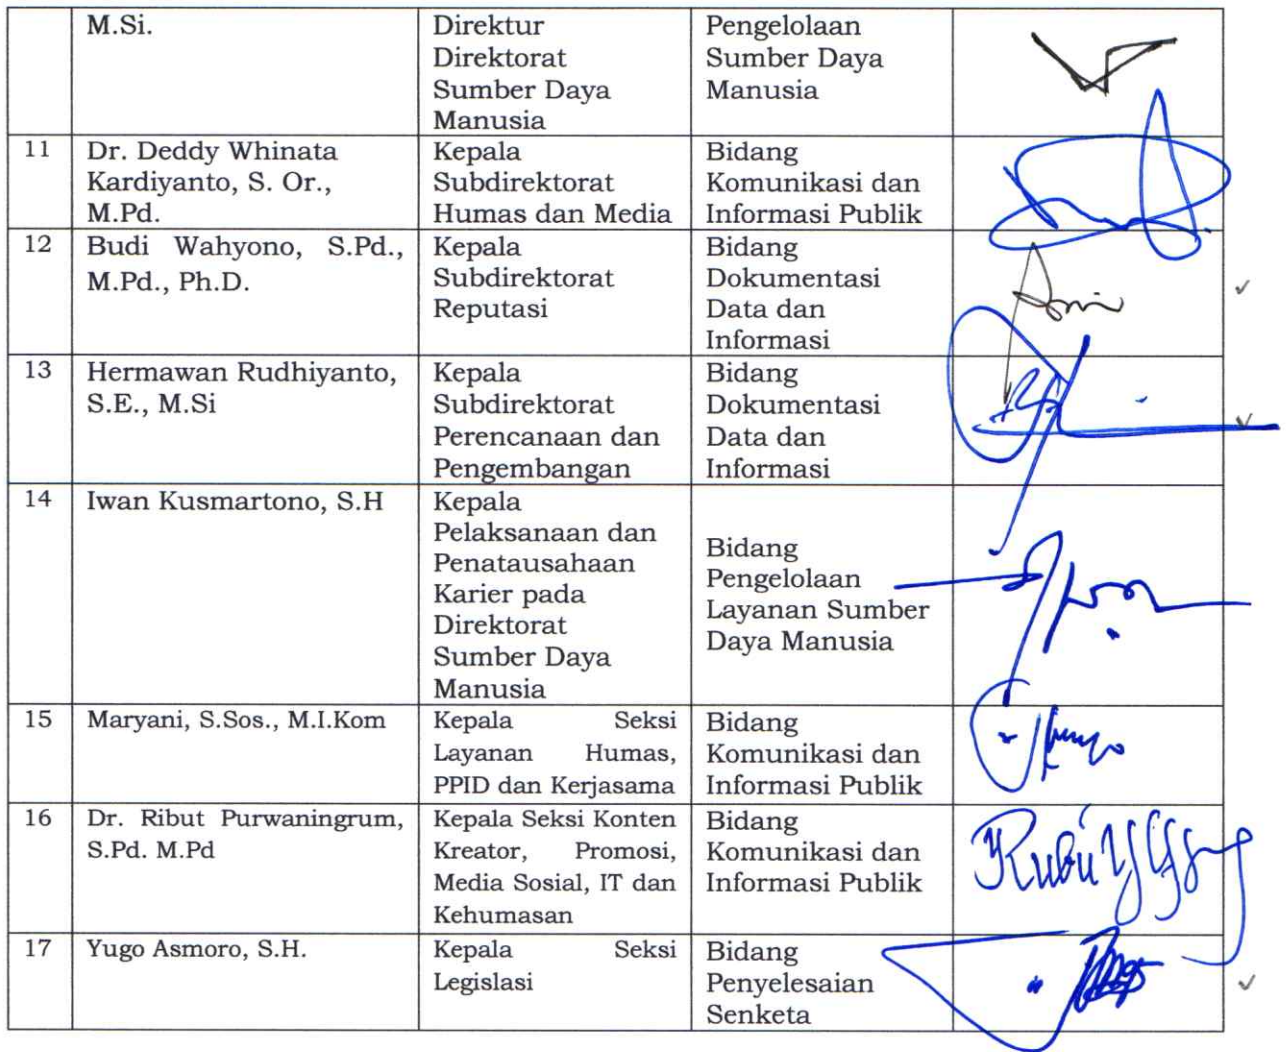 M.Si.
Direktur
Direktorat
Sumber Daya
Manusia
Pengelolaan
Sumber Daya
Manusia
11
Dr. Deddy Whinata
Kardiyanto, S. Or.,
M.Pd.
Kepala
Subdirektorat
Humas dan Media
Bidang
Komunikasi dan
Informasi Publik
12
Budi Wahyono, S.Pd.,
M.Pd., Ph.D.
Kepala
Subdirektorat
Reputasi
Bidang
Dokumentasi
Data dan
Informasi
13
Hermawan Rudhiyanto,
S.E., M.Si
Kepala
Subdirektorat
Perencanaan dan
Pengembangan
Bidang
Dokumentasi
Data dan
Informasi
14
Iwan Kusmartono, S.H
Kepala
Pelaksanaan dan
Penatausahaan
Karier pada
Direktorat
Sumber Daya
Manusia
Bidang
Pengelolaan
Layanan Sumber
Daya Manusia
15
Maryani, S.Sos., M.I.Kom
Kepala Seksi
Layanan Humas,
PPID dan Kerjasama
Bidang
Komunikasi dan
Informasi Publik
16
Dr. Ribut Purwaningrum,
S.Pd. M.Pd
Kepala Seksi Konten
Kreator, Promosi,
Media Sosial, IT dan
Kehumasan
Bidang
Komunikasi dan
Informasi Publik
17
Yugo Asmoro, S.H.
Kepala Seksi
Legislasi
Bidang
Penyelesaian
Senketa